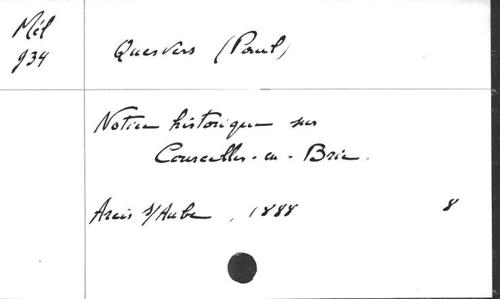 Mél
934
Quesvers (Paul)
Notice historique sur
Courcelles-en-Brie.
Arcis s/Aube, 1888 8